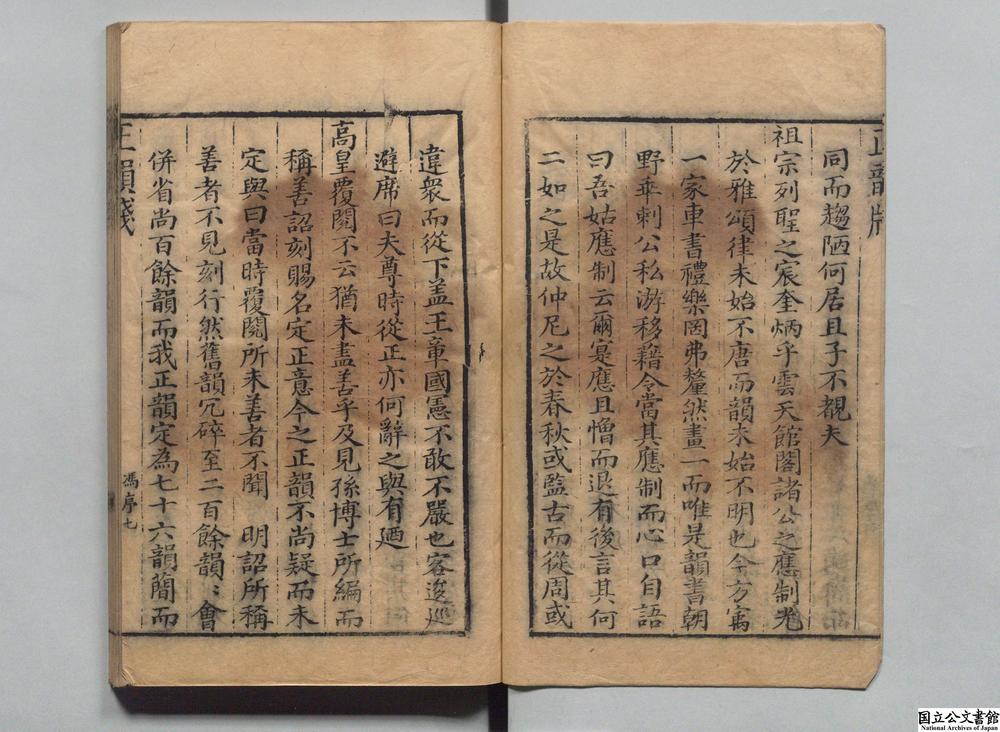 正韻牋
同而趨陋何居且子不覩夫
祖宗列聖之宸奎炳乎雲天館閣諸公之應制光
於雅頌律未始不唐而韻未始不明也今方寓
一家車書禮樂罔弗釐然畫一而唯是韻書朝
野乖剌公私游移藉令當其應制而心口自語
曰吾姑應制云爾寔應且憎而退有後言其何
二如之是故仲尼之於春秋或監古而從周或
違衆而從下盖王章國憲不敢不嚴也客逡巡
避席曰夫尊時從正亦何辭之與有廼
高皇覆閱不云猶未盡善乎及見孫博士所編而
稱善詔刻賜名定正意今之正韻不尚疑而未
定與曰當時覆閱所未善者不聞 明詔所稱
善者不見刻行然舊韻冗碎至二百餘韻〻會
併省尚百餘韻而我正韻定為七十六韻簡而
正韻牋
馮序七
国立公文書館
National Archives of Japan